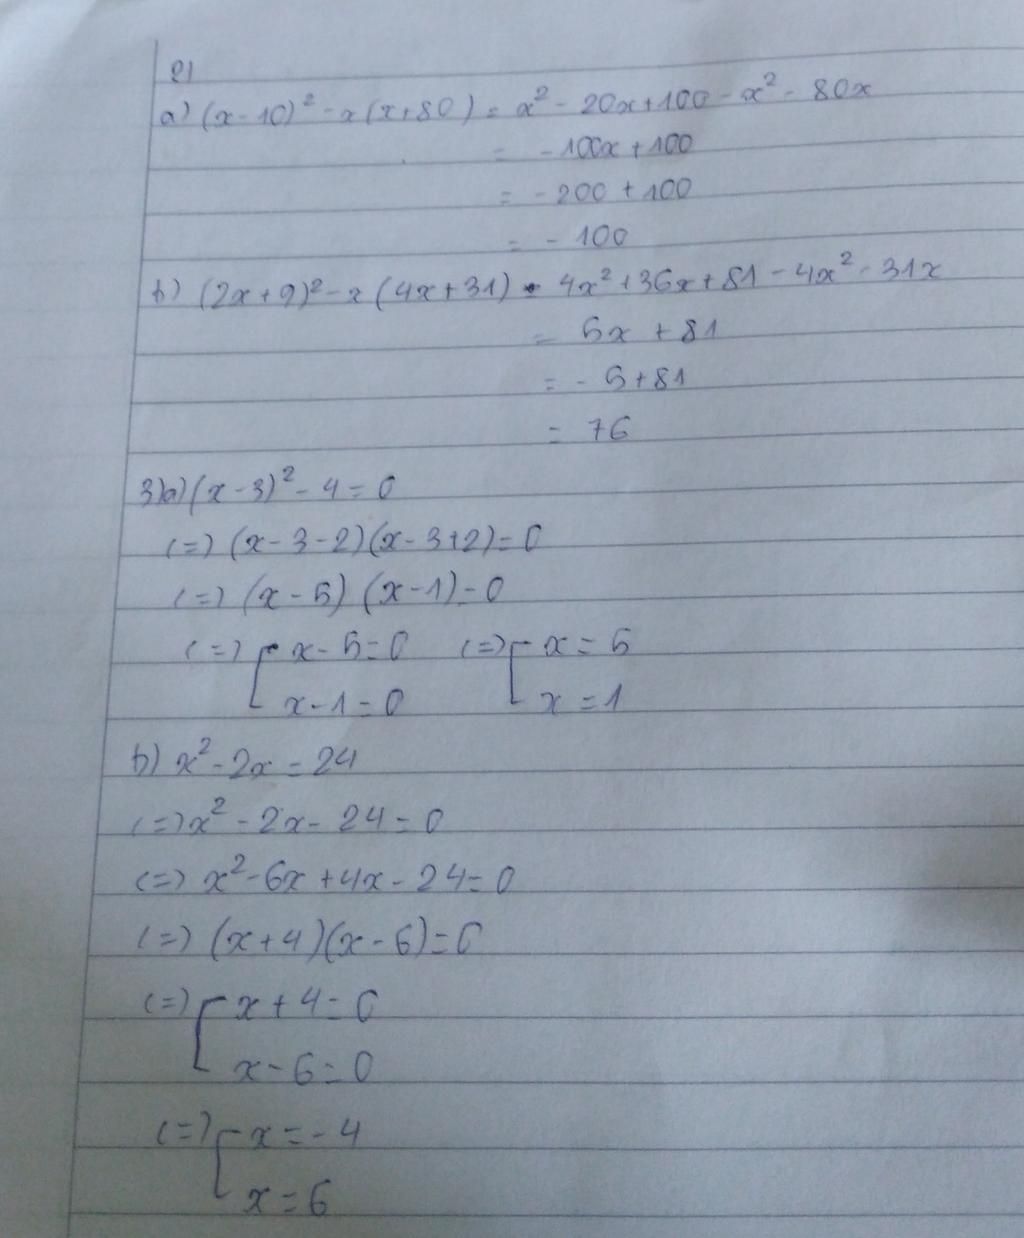 2)
a) (x-10)² - x(x+80) = x² - 20x + 100 - x² - 80x
= -100x + 100
= -200 + 100
= -100
b) (2x+9)² - x(4x+31) = 4x² + 36x + 81 - 4x² - 31x
= 5x + 81
= -5 + 81
= 76
3) a) (x-3)² - 4 = 0
(=) (x-3-2)(x-3+2) = 0
(=) (x-5)(x-1) = 0
(=) [ x-5=0 (=) [ x=5
x-1=0 x=1
b) x² - 2x = 24
(=) x² - 2x - 24 = 0
(=) x² - 6x + 4x - 24 = 0
(=) (x+4)(x-6) = 0
(=) [ x+4=0
x-6=0
(=) [ x=-4
x=6